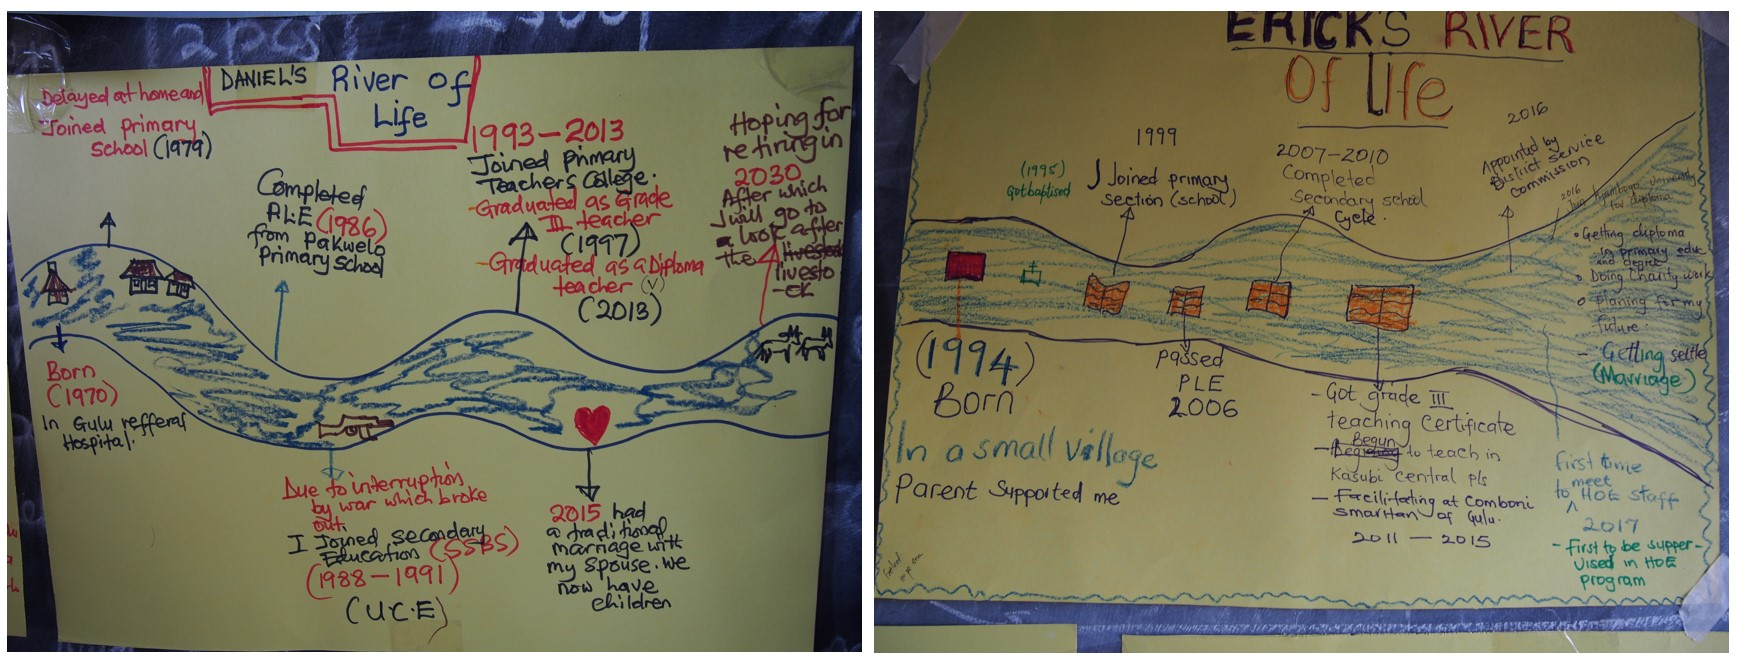 2pcs
DANIEL'S River of
Life
Delayed at home and
Joined primary
school (1979)
Completed
P.L.E (1986)
from Pakwelo
Primary School
1993-2013
Joined primary
Teachers College.
-Graduated as Grade
III teacher
(1997)
-Graduated as a Diploma
teacher (V)
(2013)
Hoping for
retiring in
2030
After which
I will go to
look after
the
livesto
-ck
Born
(1970)
In Gulu refferal
Hospital.
Due to interruption
by war which broke
out.
I Joined secondary
Education (SSBS)
(1988-1991)
(U.C.E)
2015 had
a traditional
marriage with
my spouse. we
now have
children
ERICK'S RIVER
Of Life
(1995)
Got baptised
1999
Joined primary
section (school)
2007-2010
Completed
Secondary school
Cycle.
2016
Appointed by
District service
Commission
2016
Kyambogo University
for diploma
• Getting diploma
in primary educ
and degree
• Doing Charity work
• Planing for my
future.
- Getting settle
(Marriage)
(1994)
Born
In a small village
Parent Supported me
Passed
PLE
2006
- Got grade III
teaching Certificate
- Begun to teach in
Kasubi central p/s
- Facilitating at Comboni
smartian of Gulu.
2011 - 2015
first time
to meet HOE staff
2017
- First to be supper-
vised in HOE
program